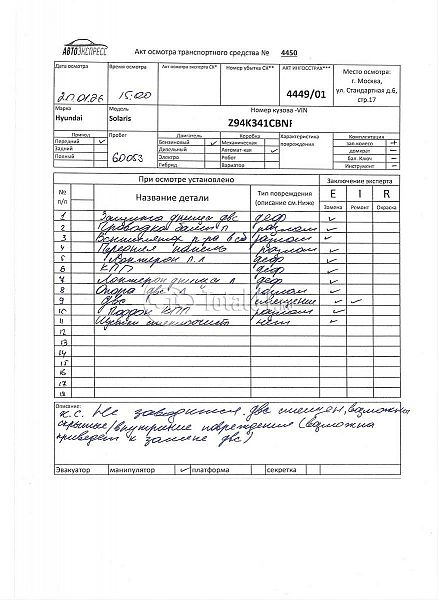 АВТОЭКСПРЕСС
Акт осмотра транспортного средства № 4450
Дата осмотра Время осмотра Акт осмотра эксперта СК* Номер убытка СК** АКТ ИНГОССТРАХ*** Место осмотра:
г. Москва,
ул. Стандартная д.6,
стр.17
15:00 4449/01
Марка Модель Номер кузова -VIN
Hyundai Solaris Z94K341CBNF
Привод Пробег Двигатель Коробка Характеристика повреждений Комплектация
Передний ✓ Бензиновый ✓ Механическая зап.колесо +
Задний Дизельный Автомат-кая ✓ домкрат −
Полный 60053 Электро Робот бал. Ключ −
Гибрид Вариатор Инструмент −
При осмотре установлено Заключение эксперта
№ п/п Название детали Тип повреждения (описание см.Ниже E I R
Замена Ремонт Окраска
1 Защита днища двс деф ✓
2 Проводка п разлом ✓
3 разлом ✓
4 Передняя панель разлом ✓
5 Лонжерон п.л деф ✓
6 КПП деф ✓
7 Лонжерон днища л деф ✓
8 Опора двс л разлом ✓
9 двс смещение ✓ ✓
10 Поддон КПП разлом ✓
11 нет ✓
12
13
14
15
16
17
18
Total
Описание:
к.с. Не заводится. двс смещен, возможны
скрытые/внутрение повреждения (возможна
приведет к замене двс)
Эвакуатор манипулятор ✓ платформа секретка